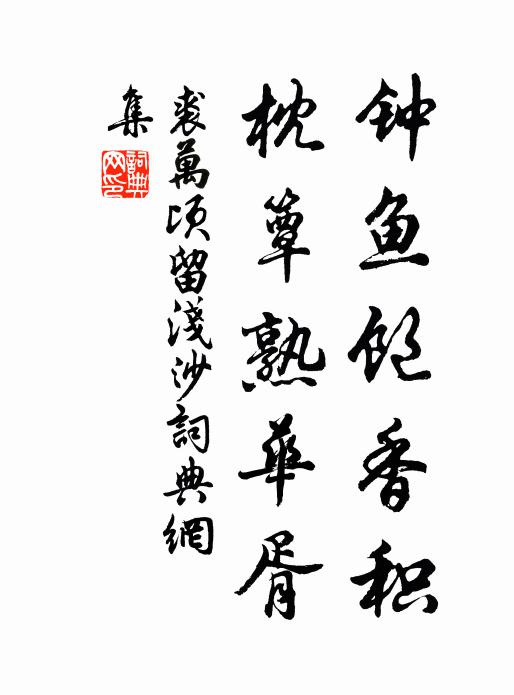 钟鱼饱香积
枕簟熟華胥
裘萬頃留淺沙詞典網
集
詞典网印